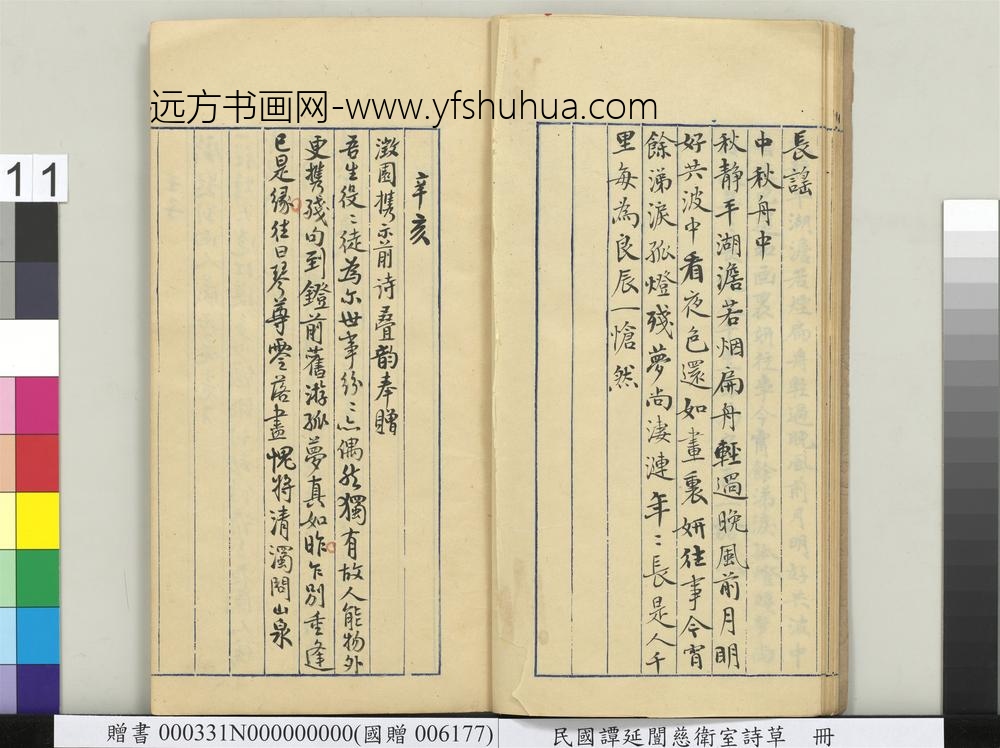 远方书画网-www.yfshuhua.com
長謡
中秋舟中
秋静平湖澹若烟扁舟輕過晚風前月明
好共波中看夜色還如畫裏妍往事今宵
餘涕淚孤燈殘夢尚淒漣年〻長是人千
里每為良辰一愴然
辛亥
澂園携示前诗疊韵奉贈
吾生役〻徒為尔世事紛〻亦偶然獨有故人能物外
更携殘句到鐙前舊游孤夢真如昨乍别重逢
已是缘往日琴尊零落盡愧将清濁問山泉
11
贈書 000331N000000000(國贈 006177)
民國譚延闓慈衛室詩草 冊